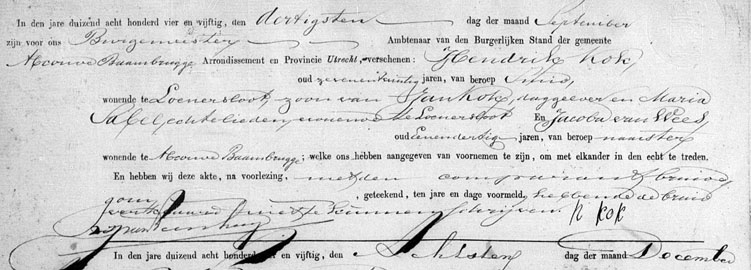 In den jare duizend acht honderd vier en vijftig, den dertigsten dag der maand September
zijn voor ons Burgemeester Ambtenaar van den Burgerlijken Stand der gemeente
Abcoude Baambrugge Arrondissement en Provincie Utrecht, verschenen: Hendrik Kok,
oud zevenentwintig jaren, van beroep Smid,
wonende te Loenersloot, zoon van Jan Kok, daggelder en Maria
Sabel, echtelieden, wonende te Loenersloot En Jacoba van Wees,
oud eenendertig jaren, van beroep naaister
wonende te Abcoude Baambrugge; welke ons hebben aangegeven van voornemen te zijn, om met elkander in den echt te treden.
En hebben wij deze akte, na voorlezing, met den comparant bruide
gom, geteekend, ten jare en dage voormeld, hebbende de bruid
verklaard niet te kunnen schrijven. H KOK
In den jare duizend acht honderd vier en vijftig, den Achtsten dag der maand December